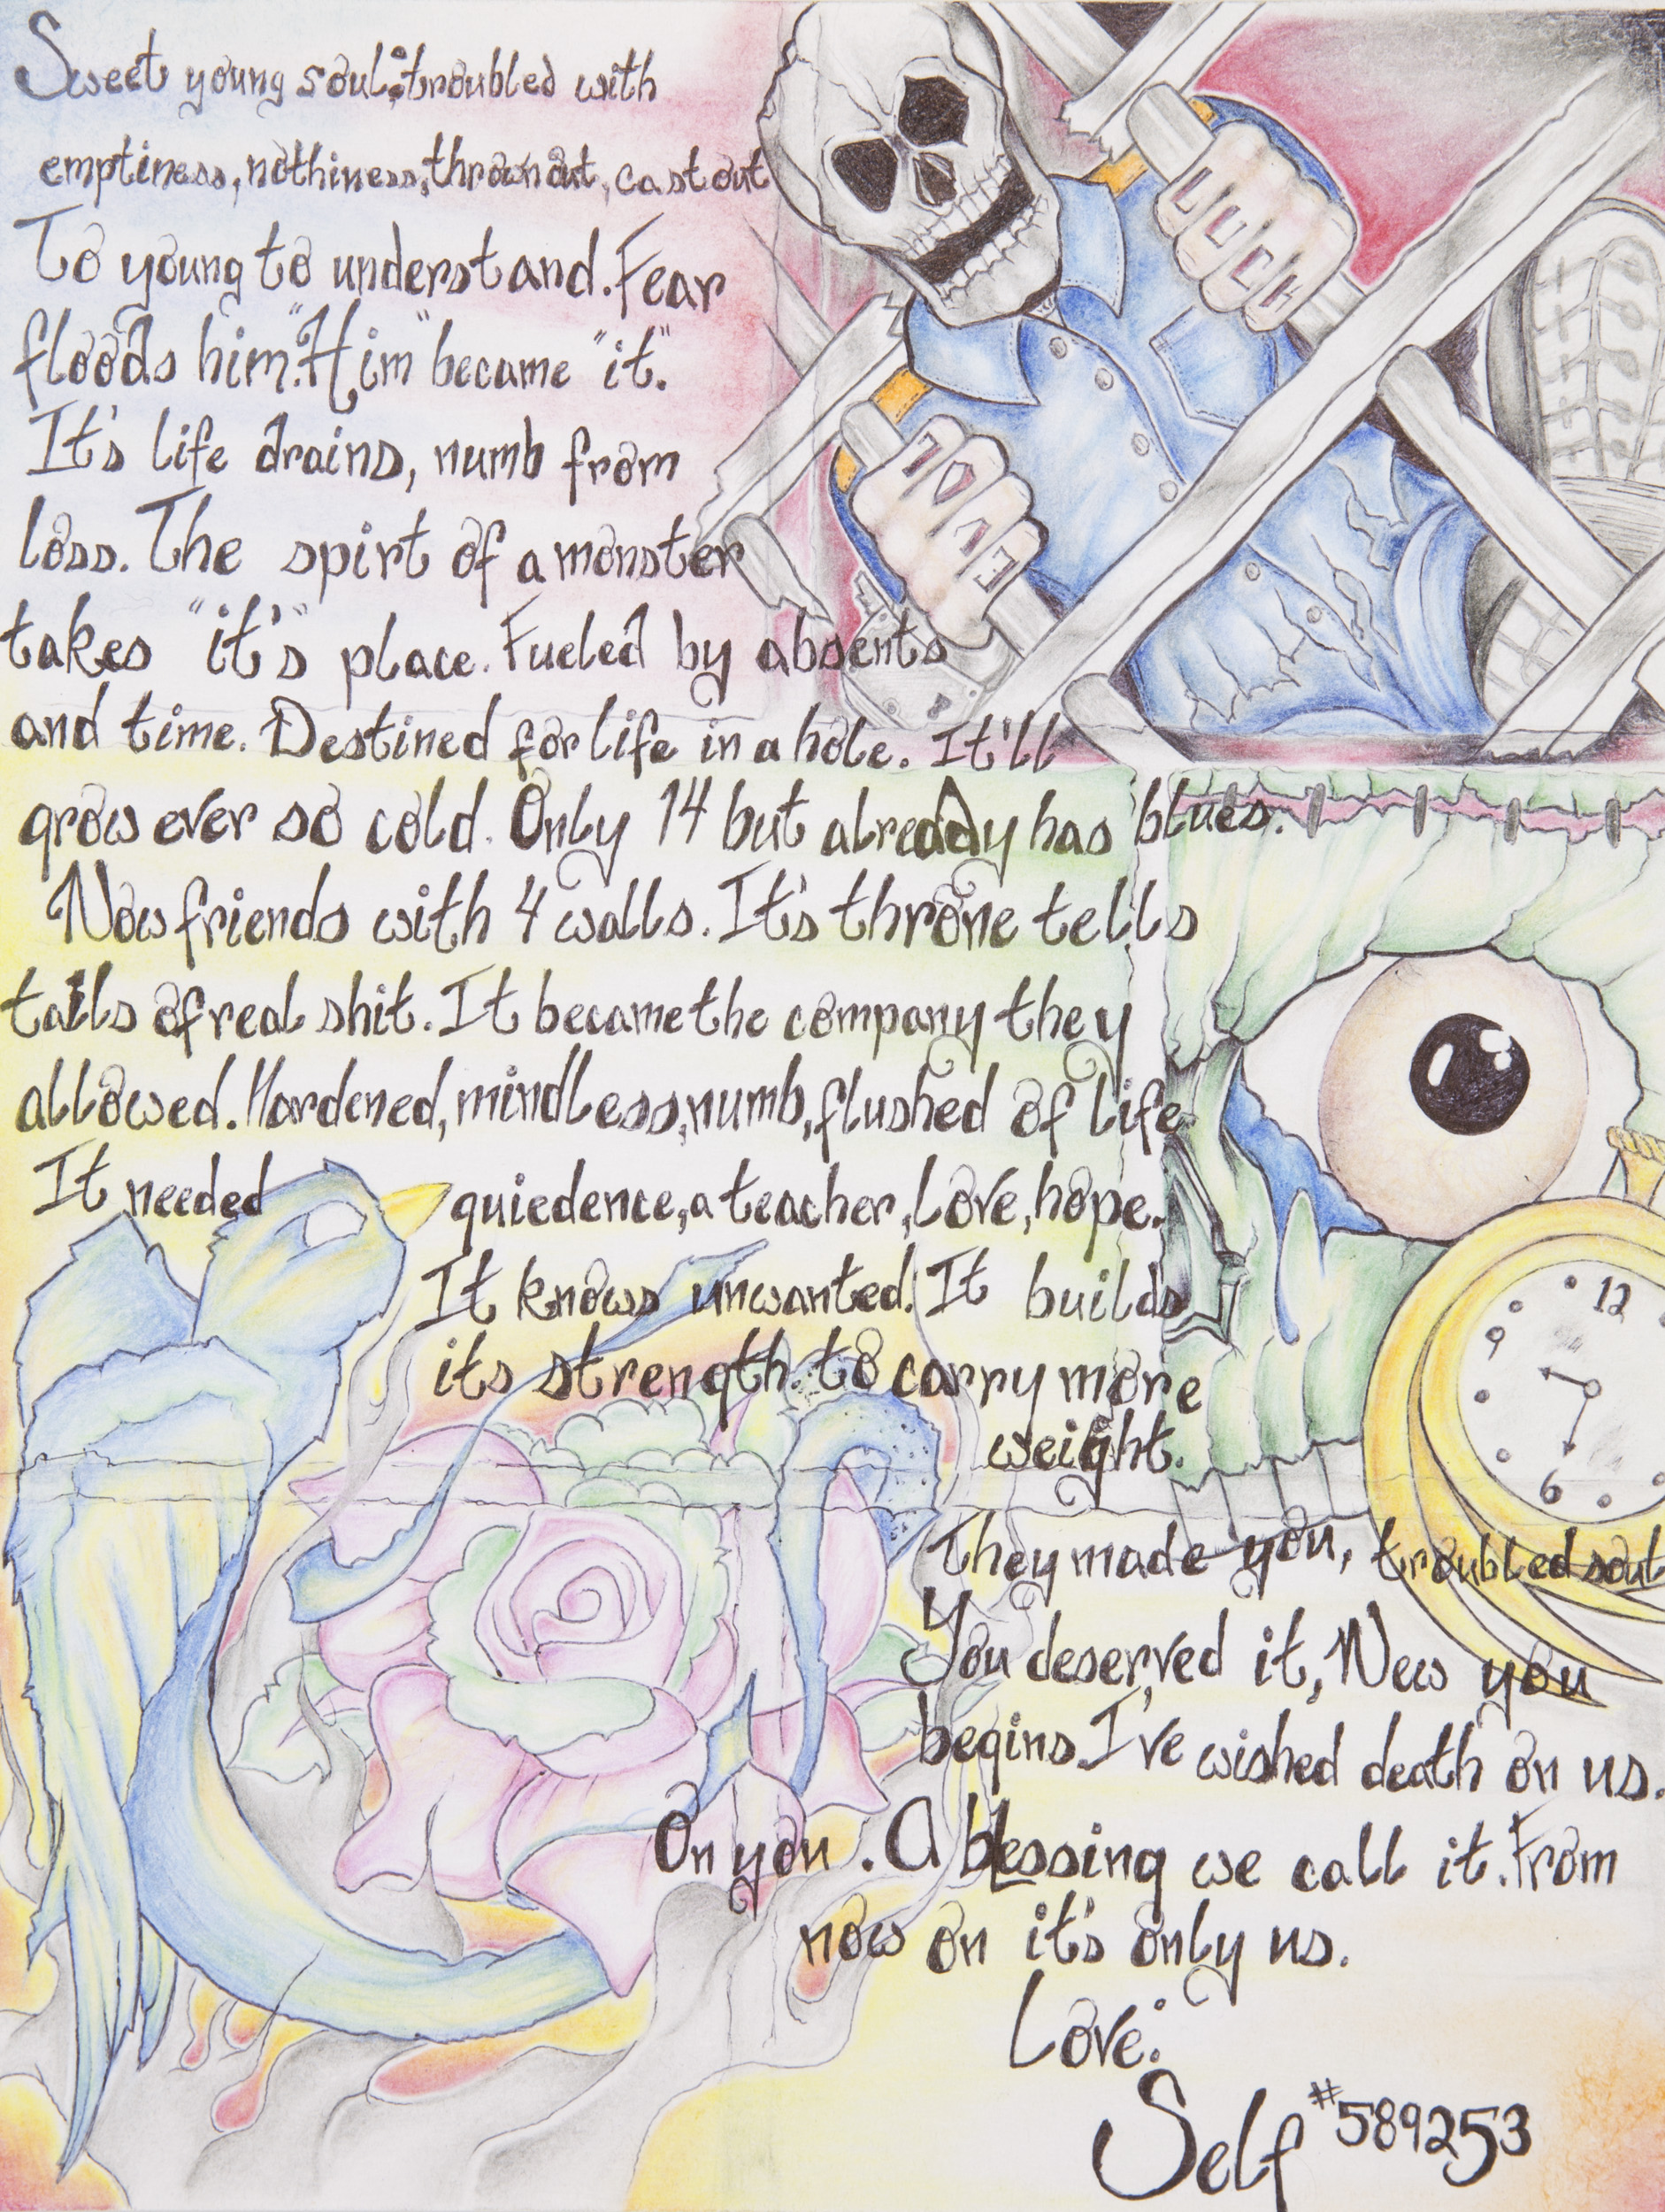 Sweet young soul: troubled with
emptiness, nothiness, thrown out, cast out
To young to understand. Fear
floods him. "Him" became "it".
It's life drains, numb from
loss. The spirt of a monster
takes "it's" place. Fueled by absents
and time. Destined for life in a hole. It'll
grow ever so cold. Only 14 but already has blues.
Now friends with 4 walls. It's throne tells
tails of real shit. It became the company they
allowed. Hardened, mindless, numb, flushed of life
It needed quiedence, a teacher, Love, hope.
It knows unwanted. It builds
its strength to carry more
weight.
They made you, troubled soul
You deserved it, New you
begins I've wished death on us.
On you. A blessing we call it. From
now on it's only us.
Love:
Self #589253
LUCK
12
9
6